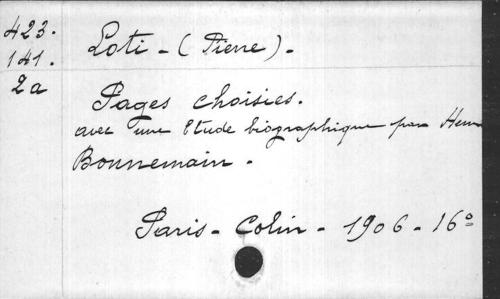 423.
141.
2a
Loti - (Pierre) -
Pages choisies.
avec une Etude biographique par Henri
Bonnemain -
Paris - Colin - 1906 - 16º